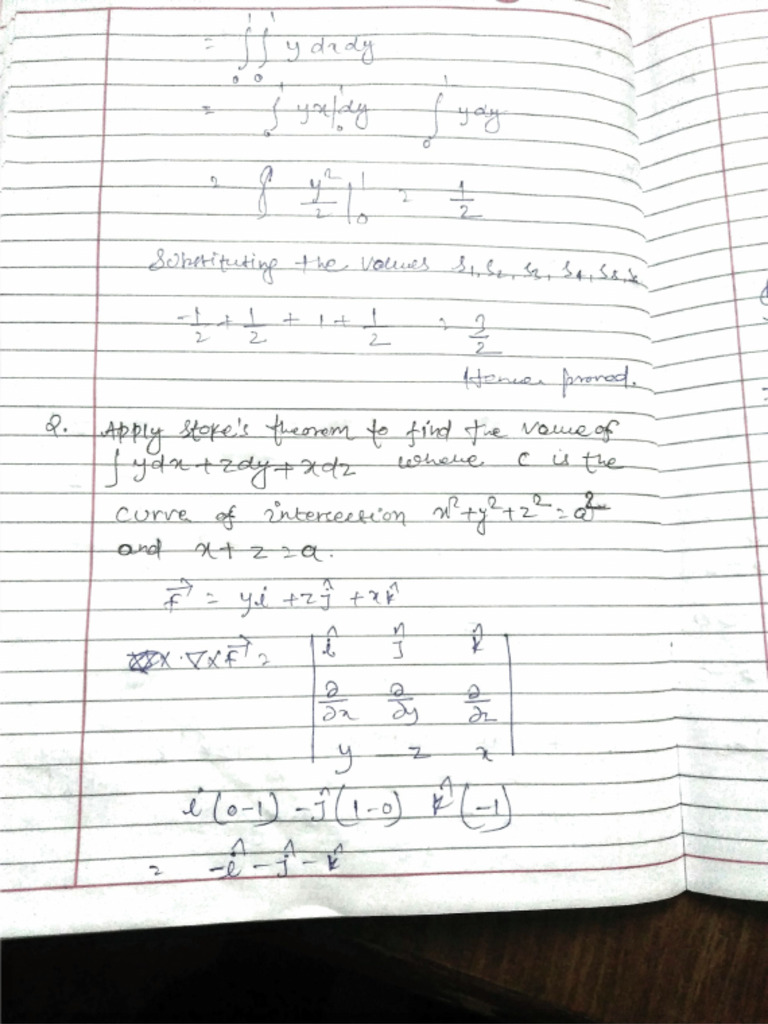 = ∫₀¹ ∫₀¹ y dx dy
= ∫₀¹ yx|₀¹ dy ∫₀¹ y dy
= ∫ y²/2 |₀¹ = 1/2
Substituting the values S₁, S₂, S₃, S₄, S₅, S₆
-1/2 + 1/2 + 1 + 1/2 = 3/2
Hence proved.
Q. Apply stoke's theorem to find the value of
∫ ydx + zdy + xdz where C is the
curve of intersection x² + y² + z² = a²
and x + z = a.
F⃗ = yî + zĵ + xk̂
∇×F⃗ = | î ĵ k̂ |
| ∂/∂x ∂/∂y ∂/∂z |
| y z x |
î (0-1) - ĵ (1-0) k̂ (-1)
= -î - ĵ - k̂